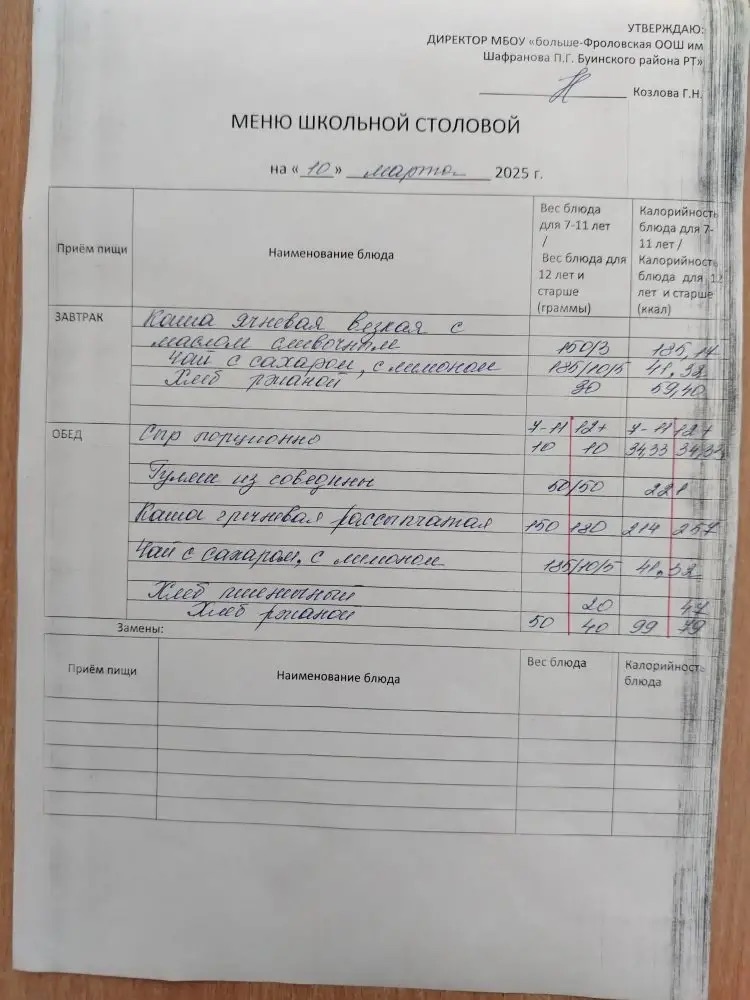 УТВЕРЖДАЮ:
ДИРЕКТОР МБОУ «больше-Фроловская ООШ им
Шафранова П.Г. Буинского района РТ»
Козлова Г.Н.
МЕНЮ ШКОЛЬНОЙ СТОЛОВОЙ
на «10» марта 2025 г.
Приём пищи
Наименование блюда
Вес блюда
для 7-11 лет
/
Вес блюда для
12 лет и
старше
(граммы)
Калорийность
блюда для 7-
11 лет /
Калорийность
блюда для 12
лет и старше
(ккал)
ЗАВТРАК
Каша ячневая вязкая с
маслом сливочным 150/3 185,14
Чай с сахаром, с лимоном 185/10/5 41,32
Хлеб ржаной 30 59,40
7-11 12+ 7-11 12+
ОБЕД Сыр порционно 10 10 34,33 34,33
Гуляш из говядины 50/50 221
Каша гречневая рассыпчатая 150 180 214 257
Чай с сахаром, с лимоном 185/10/5 41,32
Хлеб пшеничный 20 47
Хлеб ржаной 50 40 99 79
Замены:
Приём пищи
Наименование блюда
Вес блюда
Калорийность
блюда